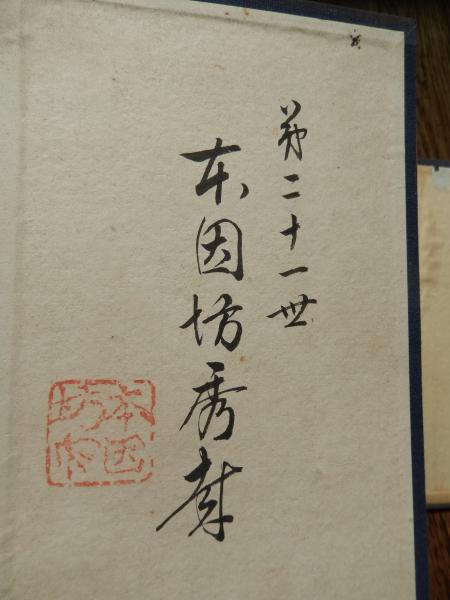 第二十一世
本因坊秀哉
本因
坊